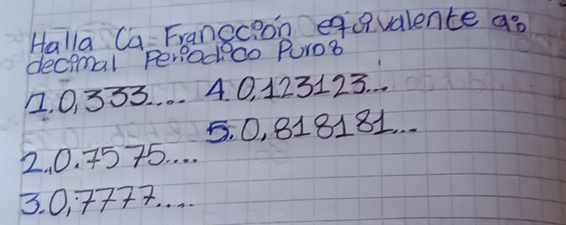 Halla la Franccion equivalente a:
decimal Periodico Puro:
1. 0,333.... 4. 0,123123...
5. 0,818181...
2. 0.7575....
3. 0,7777....